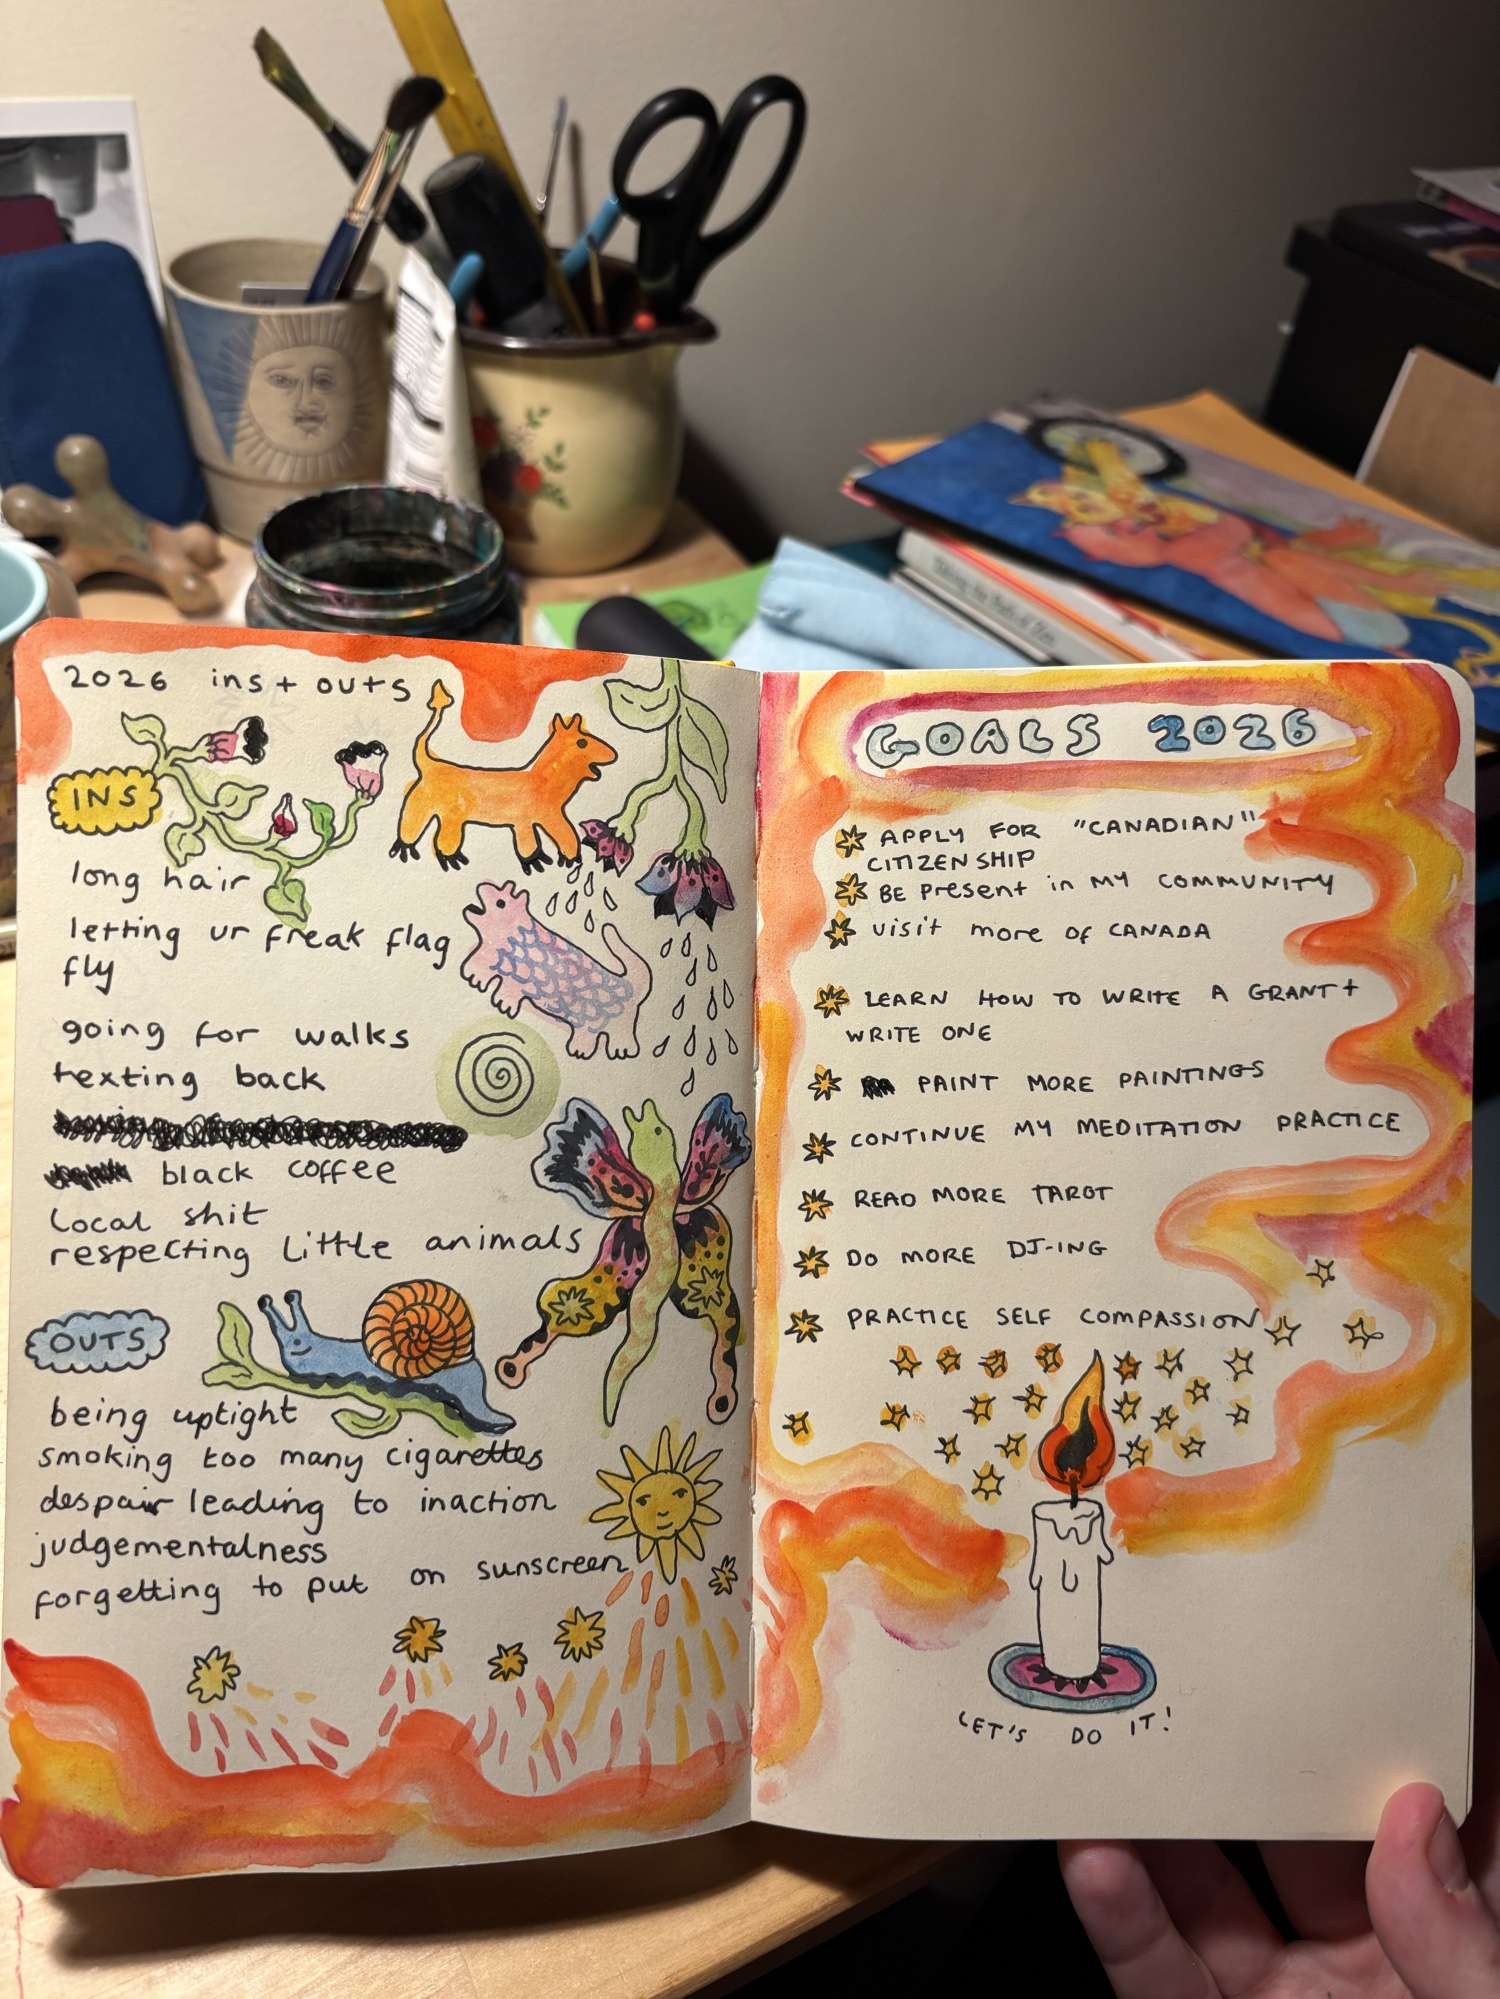 2026 ins + outs
INS
long hair
letting ur freak flag
fly
going for walks
texting back
black coffee
Local shit
respecting Little animals
OUTS
being uptight
smoking too many cigarettes
despair leading to inaction
judgementalness
forgetting to put on sunscreen
GOALS 2026
APPLY FOR "CANADIAN"
CITIZENSHIP
BE Present in MY COMMUNITY
visit more of CANADA
LEARN HOW TO WRITE A GRANT +
WRITE ONE
PAINT MORE PAINTINGS
CONTINUE MY MEDITATION PRACTICE
READ MORE TAROT
DO MORE DJ-ING
PRACTICE SELF COMPASSION
LET'S DO IT!